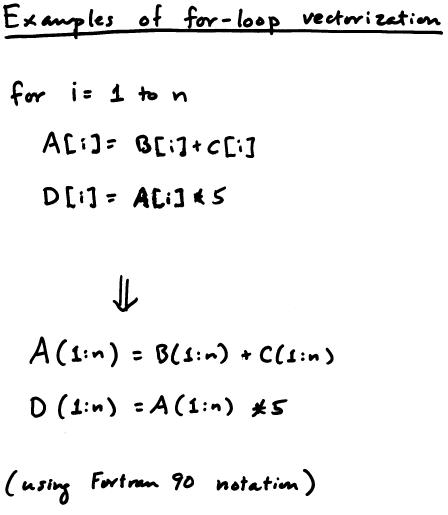 Examples of for-loop vectorization
for i = 1 to n
A[i] = B[i] + C[i]
D[i] = A[i] * 5
⇓
A(1:n) = B(1:n) + C(1:n)
D(1:n) = A(1:n) * 5
(using Fortran 90 notation)